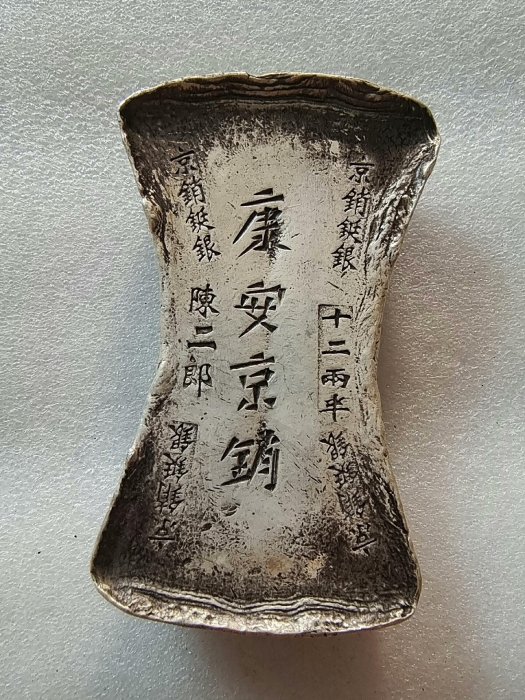 京銷鋌銀
十二兩半
京銷鋌銀
康安京銷
京銷鋌銀
陳二郎
京銷鋌銀